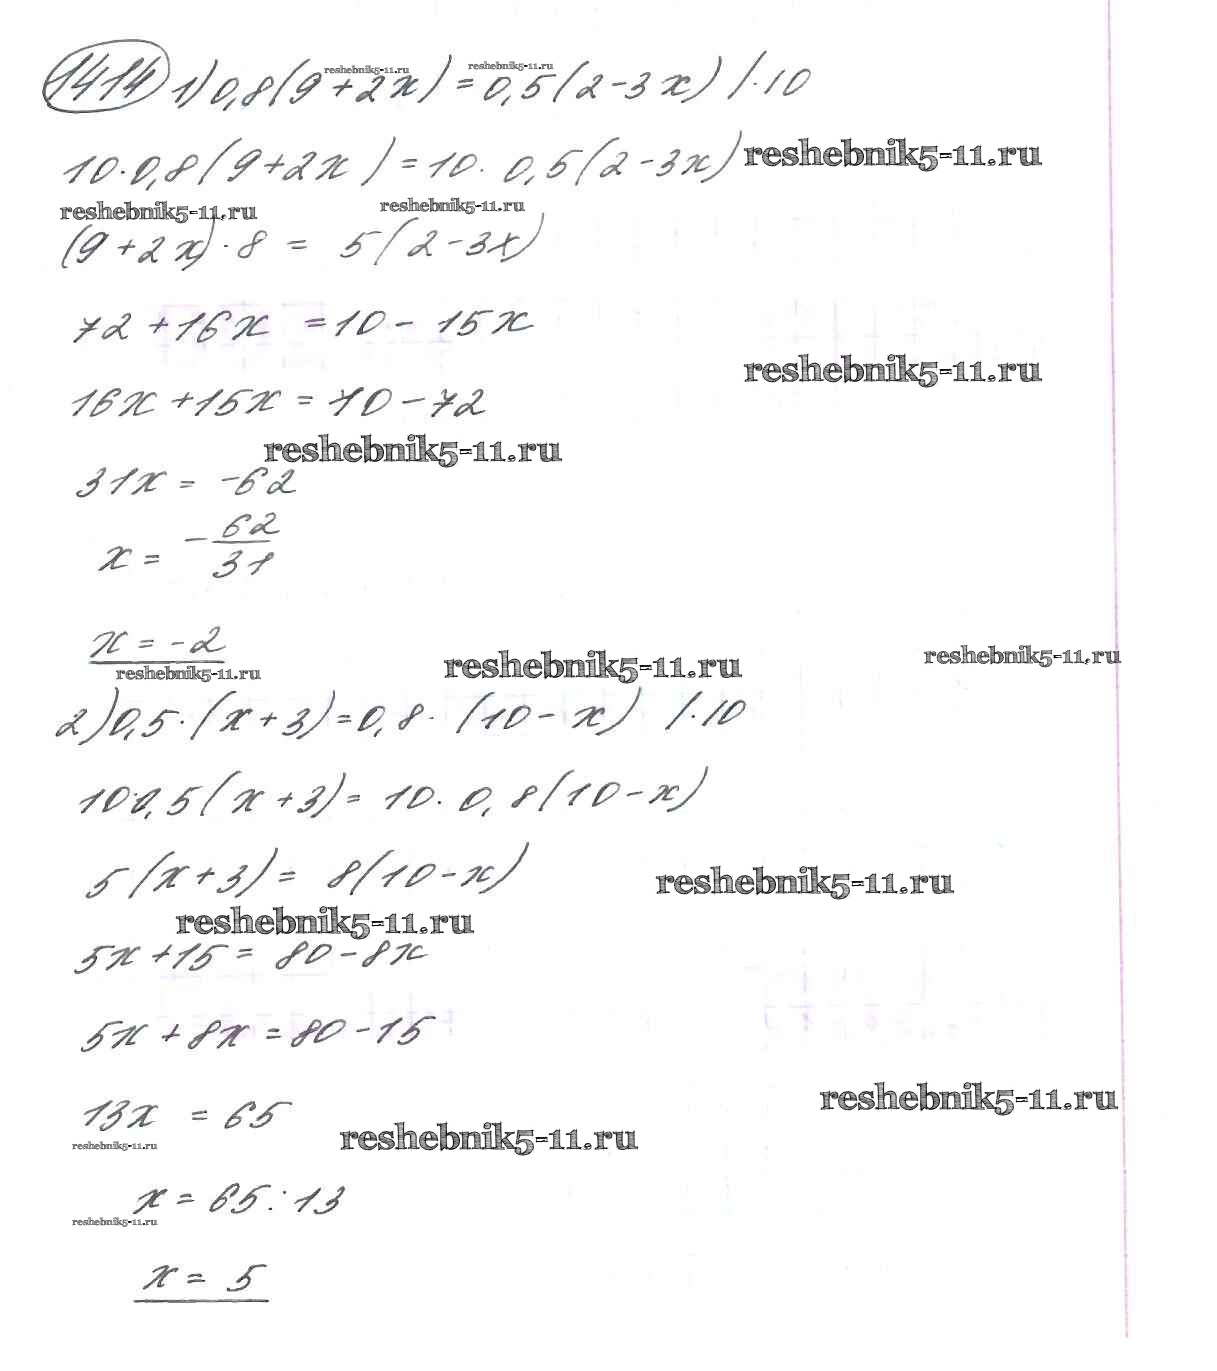 1414 1) 0,8(9+2x)=0,5(2-3x) /·10
reshebnik5-11.ru reshebnik5-11.ru
10·0,8(9+2x)=10·0,5(2-3x)
reshebnik5-11.ru
reshebnik5-11.ru reshebnik5-11.ru
(9+2x)·8 = 5(2-3x)
72+16x =10-15x
reshebnik5-11.ru
16x+15x=10-72
reshebnik5-11.ru
31x = -62
x = -62/31
x = -2
reshebnik5-11.ru reshebnik5-11.ru reshebnik5-11.ru
2) 0,5·(x+3)=0,8·(10-x) /·10
10·0,5(x+3)=10·0,8(10-x)
5(x+3)= 8(10-x)
reshebnik5-11.ru
reshebnik5-11.ru
5x+15= 80-8x
5x+8x=80-15
reshebnik5-11.ru
13x = 65
reshebnik5-11.ru reshebnik5-11.ru
x=65:13
reshebnik5-11.ru
x= 5